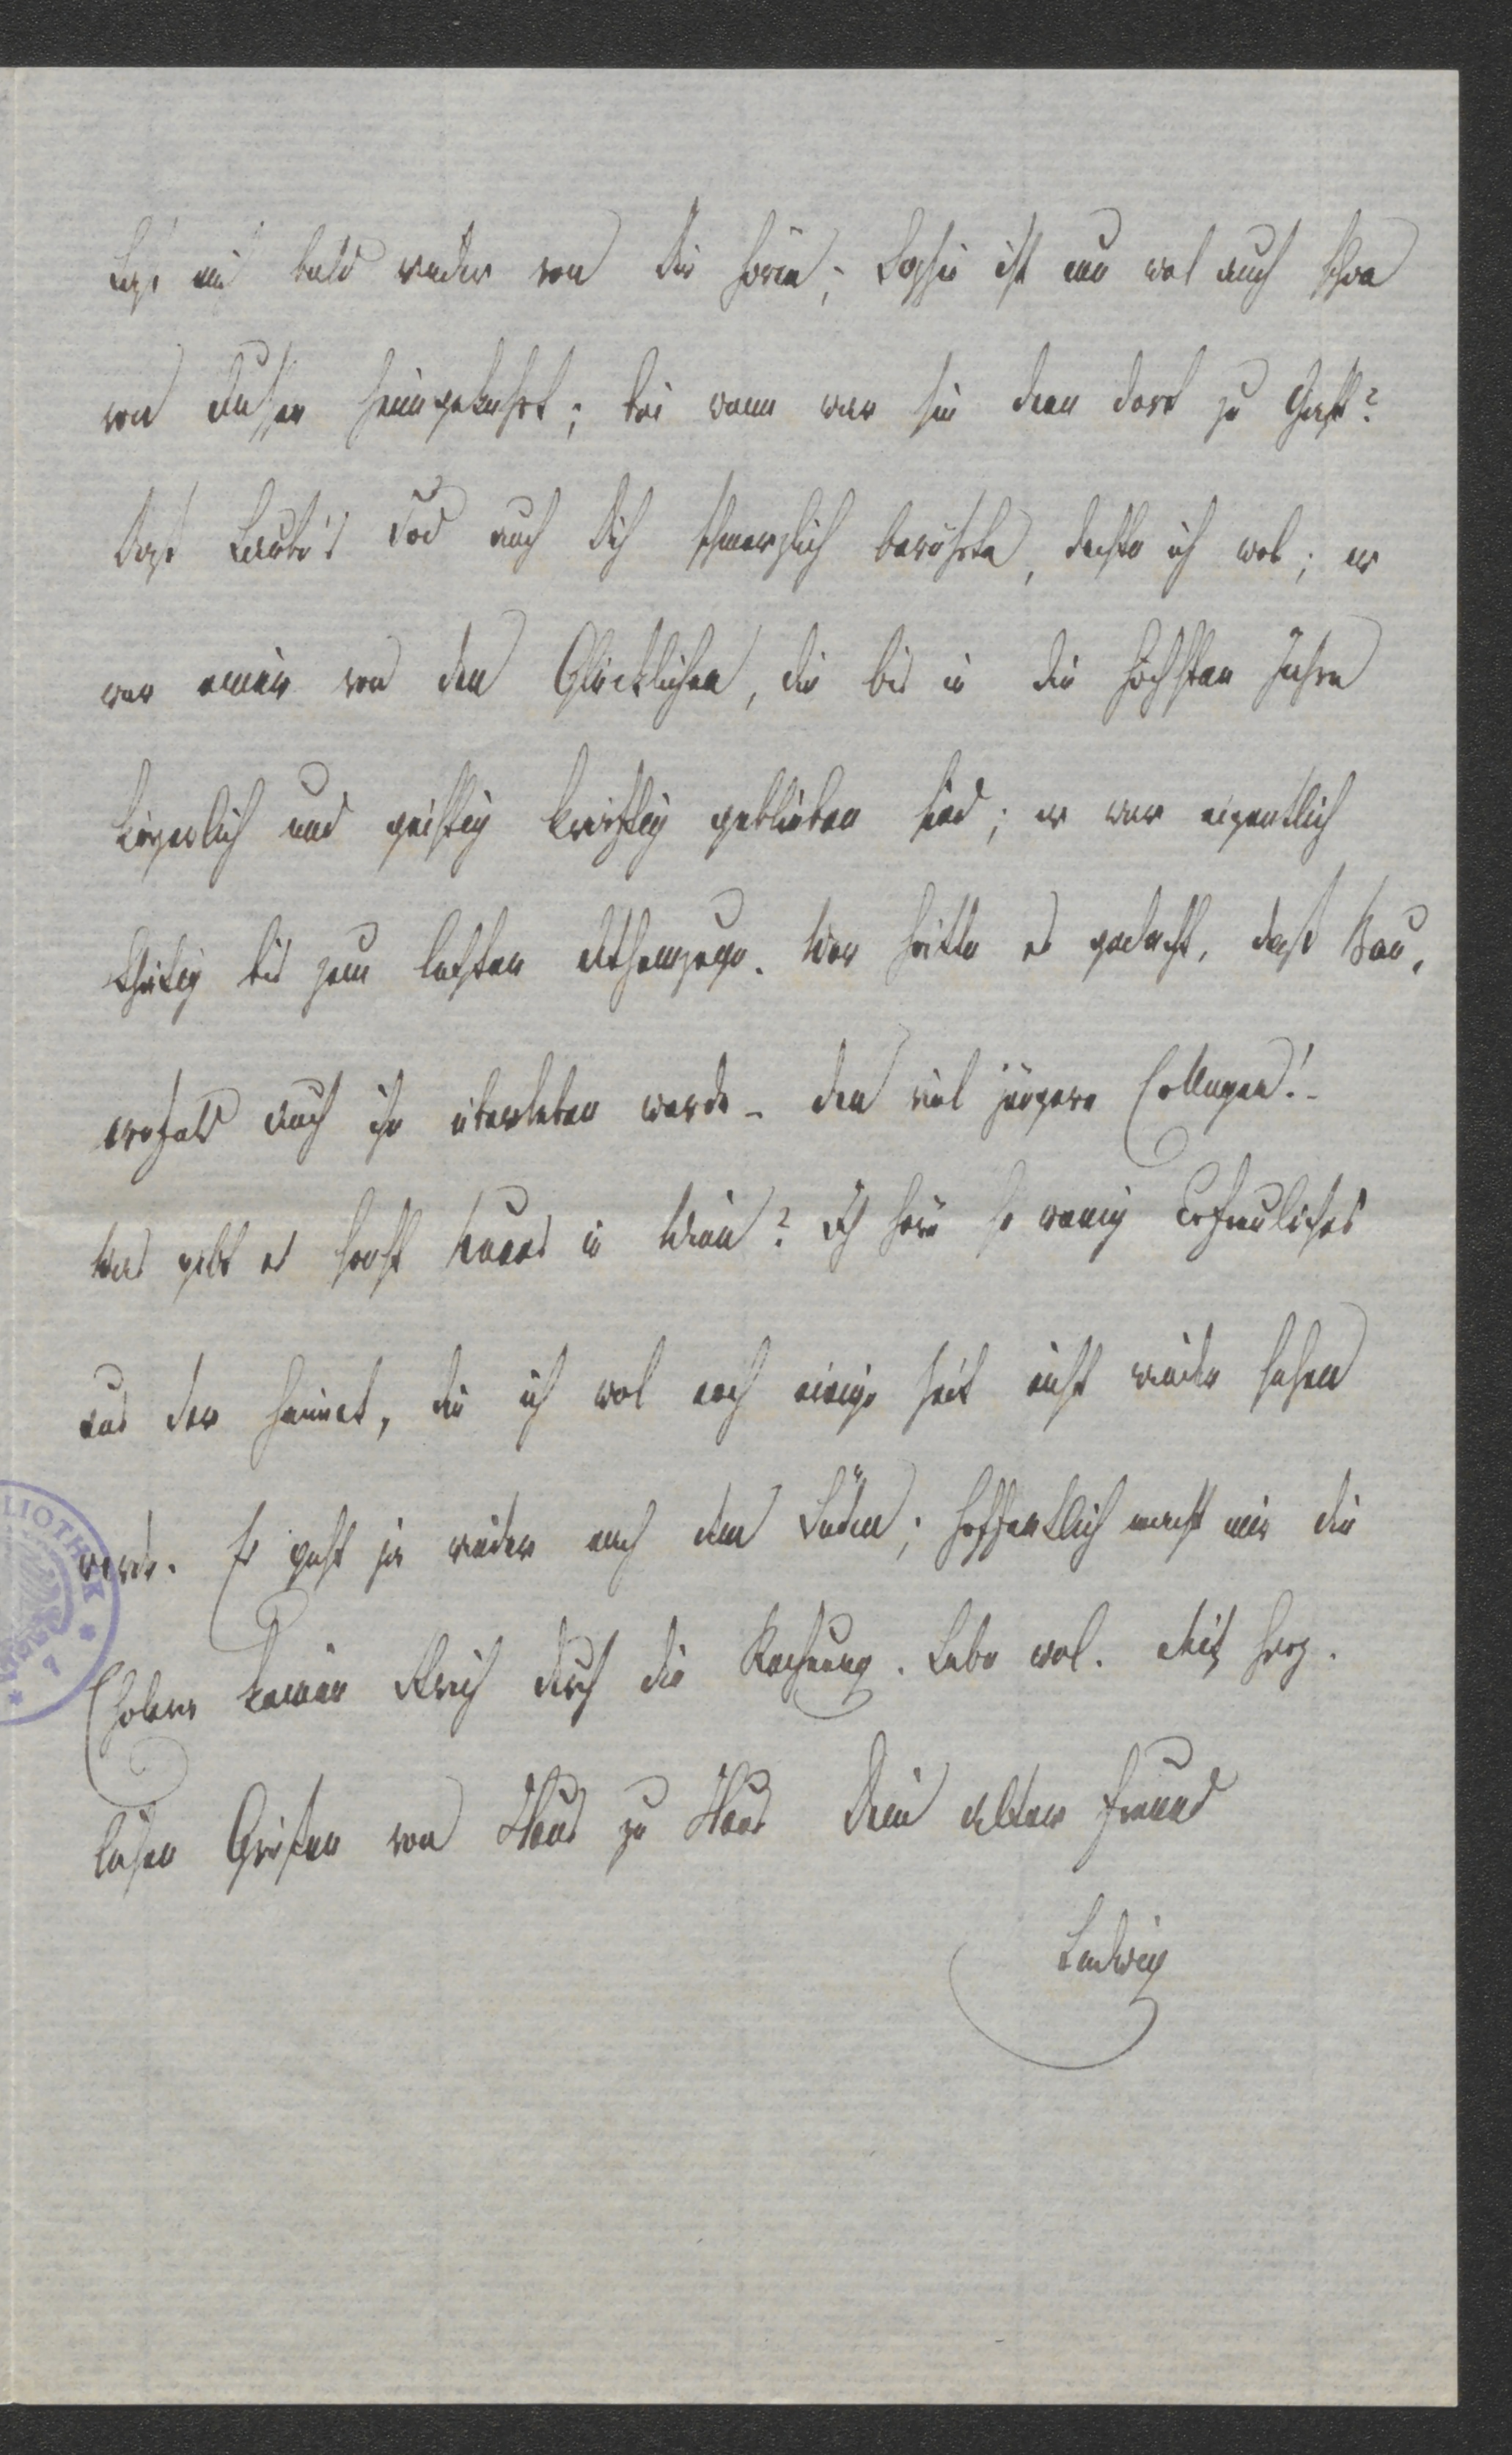 Laß mich bald wieder von Dir hören; Sophie ist nun wol auch schon
von Aussee heimgekehrt; bei wem war sie denn dort zu Gast?
Daß Laube's Tod auch Dich schmerzlich berührte, dachte ich wol; er
war einer von den Glücklichen, die bis in die höchsten Jahre
körperlich und geistig kräftig geblieben sind; er war eigentlich
thätig bis zum letzten Athemzuge. Wer hätte es gedacht, daß Bau-
ernfeld auch ihn überleben werde – den viel jüngern Collegen! –
Was gibt es sonst Neues in Wien? Ich höre so wenig Erfreuliches
aus der Heimat, die ich wol noch einige Zeit nicht wieder sehen
werde. Es geht ja wieder nach dem Süden; hoffentlich macht mir die
Cholera keinen Strich durch die Rechnung. Lebe wol. Mit herz-
lichen Grüßen von Haus zu Haus Dein alter Freund
Ludwig
BLIOTHEK